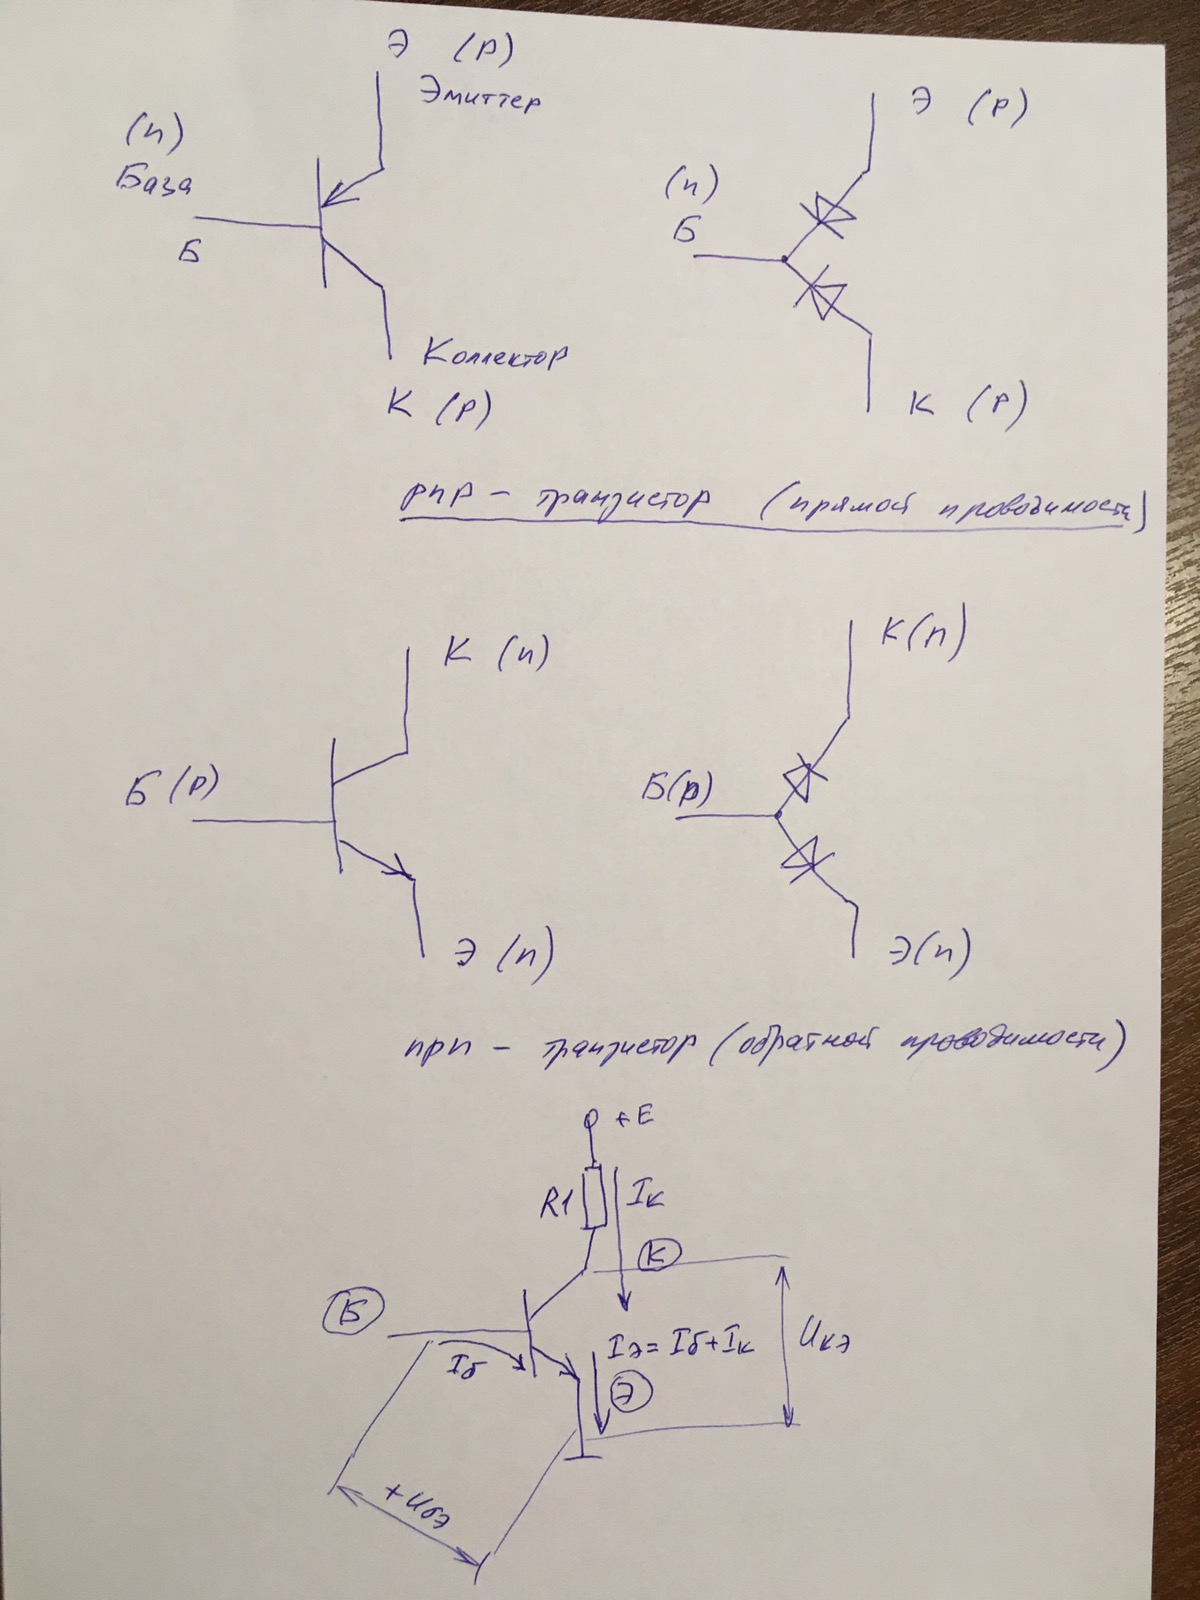 Э (p)
Эмиттер
(n)
База
Б
Коллектор
К (p)
Э (p)
(n)
Б
К (p)
pnp - транзистор (прямой проводимости)
К (n)
Б (p)
Э (n)
К(n)
Б(p)
Э(n)
npn - транзистор (обратной проводимости)
+E
R1
Iк
К
Б
Iб
Iэ = Iб + Iк
Э
Uкэ
+Uбэ